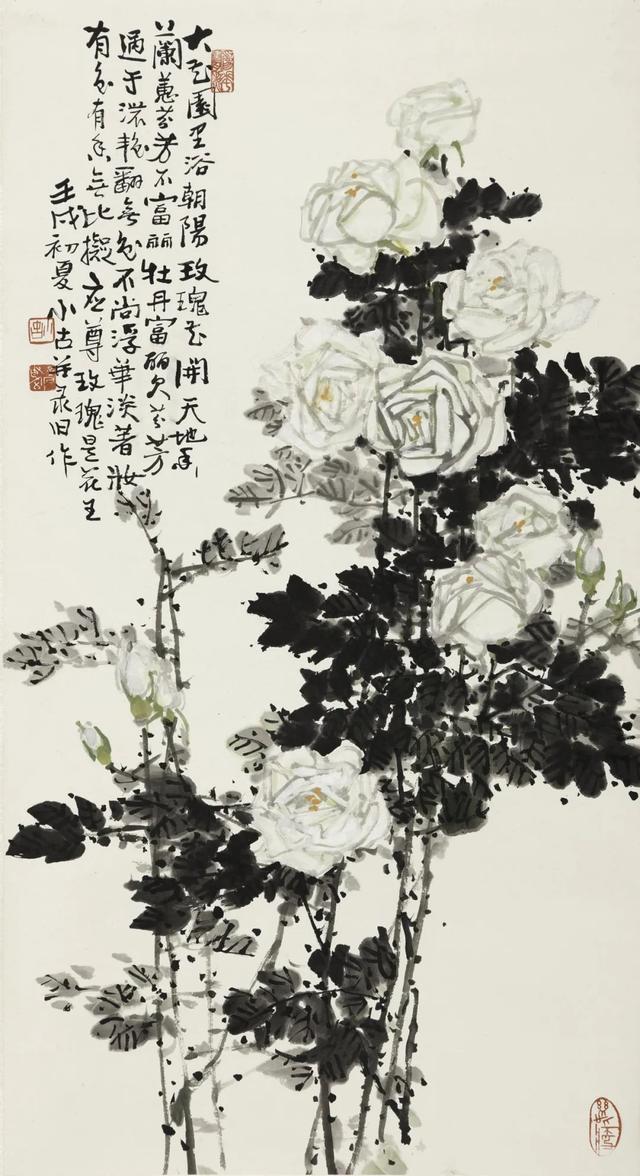 大花園里浴朝陽玫瑰花開天地香
蘭蕙芬芳不富丽牡丹富丽欠芬芳
過于濃艳翻無色不尚浮華淡著妝
有色有香無比擬应尊玫瑰是花王
壬戌初夏小古并录旧作